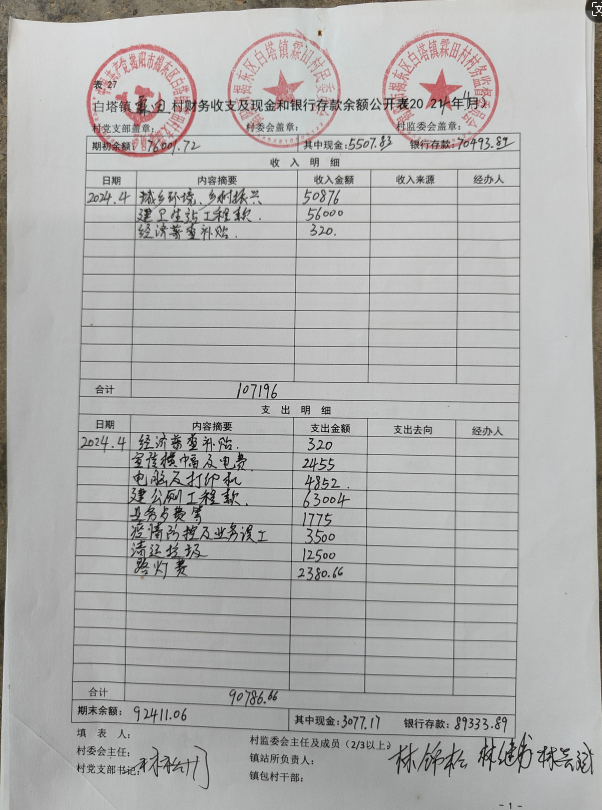 表 27
白塔镇霖田村财务收支及现金和银行存款余额公开表2024年4月
村党支部盖章: 村委会盖章: 村监委会盖章:
期初余额: 76001.72 其中现金: 5507.83 银行存款: 70493.89
收 入 明 细
日期 内容摘要 收入金额 收入来源 经办人
2024.4 城乡环境、乡村振兴 50876
建卫生站工程款. 56000
经济普查补贴. 320.
合计 107196
支 出 明 细
日期 内容摘要 支出金额 支出去向 经办人
2024.4 经济普查补贴. 320
宣传横幅及电费 2455
电脑及打印机 4852
建公厕工程款. 63004
业务占费等 1775
疫情防控及业务误工 3500
清运垃圾 12500
路灯费 2380.66
合计 90786.66
期末余额: 92411.06 其中现金: 3077.17 银行存款: 89333.89
填 表 人: 村监委会主任及成员(2/3以上):
村委会主任: 镇站所负责人: 林锦松
村党支部书记: 镇包村干部:
- 1 -